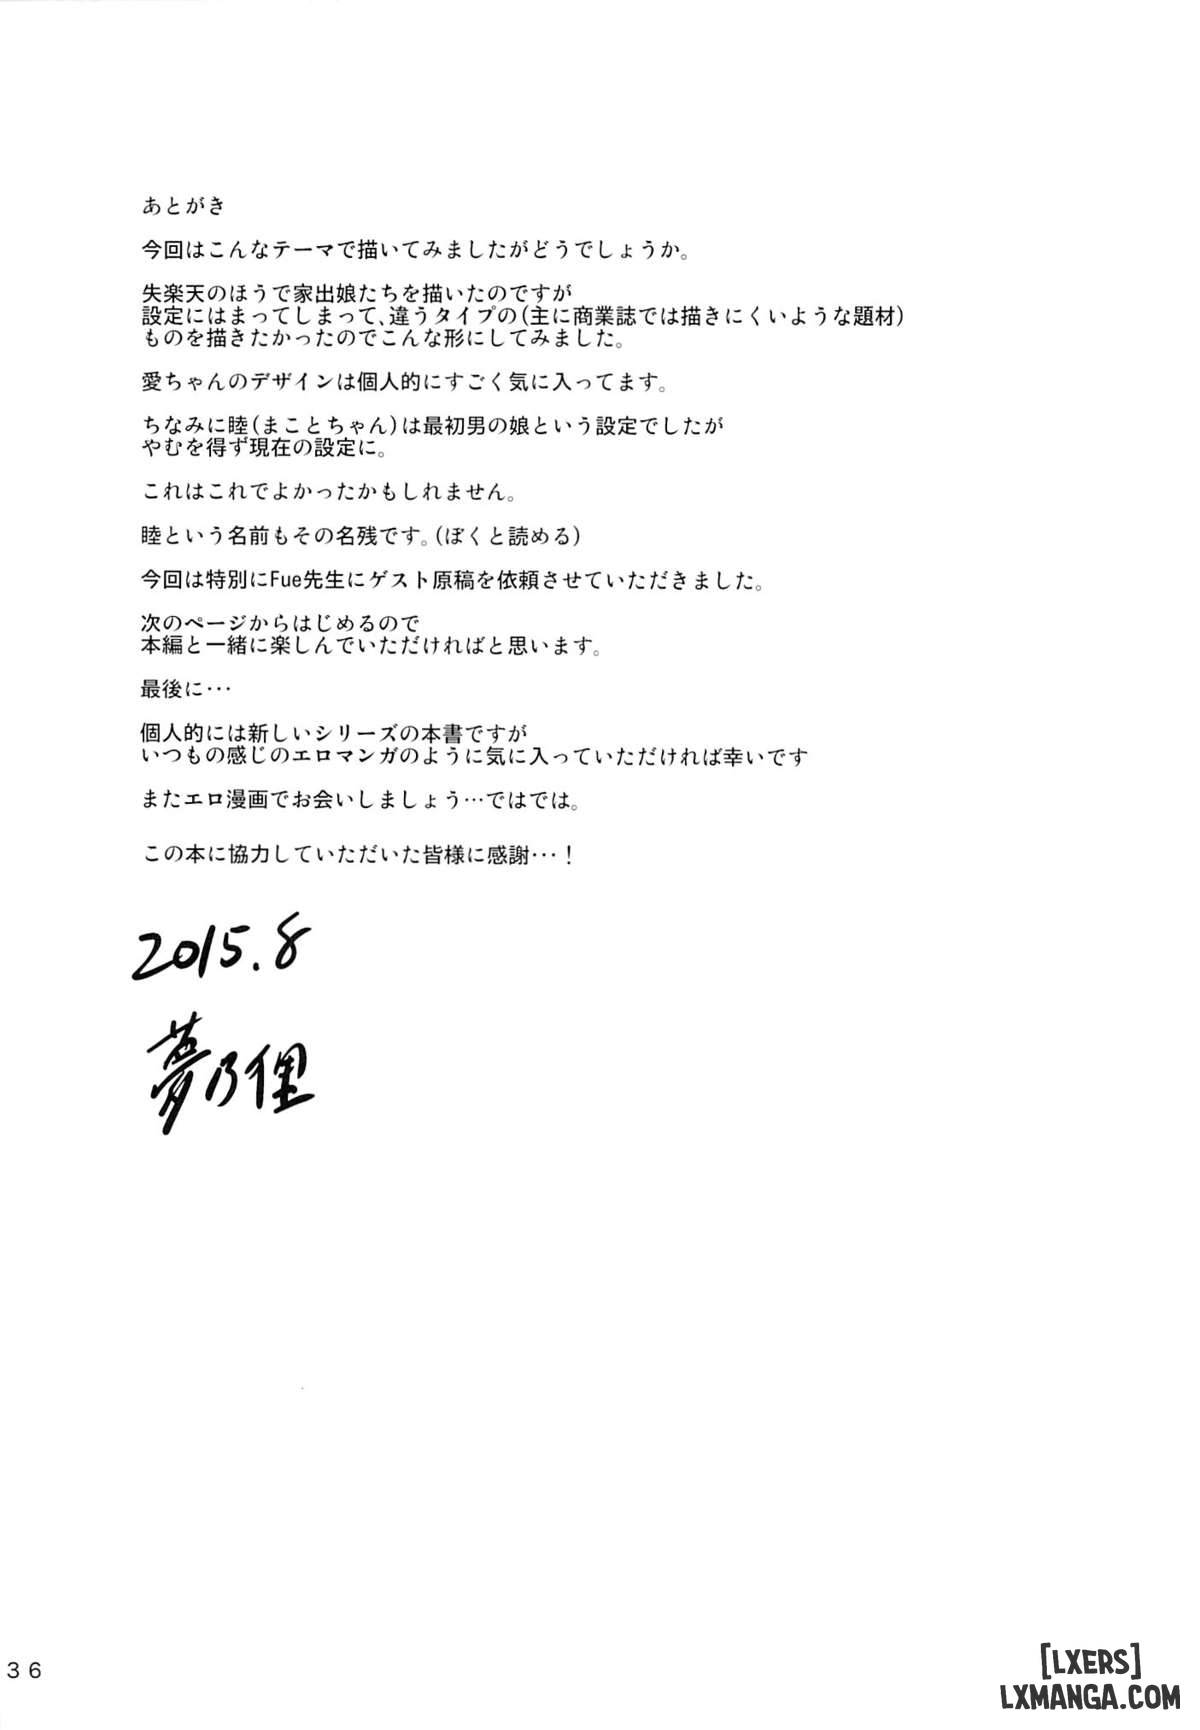 あとがき
今回はこんなテーマで描いてみましたがどうでしょうか。
失楽天のほうで家出娘たちを描いたのですが
設定にはまってしまって、違うタイプの(主に商業誌では描きにくいような題材)
ものを描きたかったのでこんな形にしてみました。
愛ちゃんのデザインは個人的にすごく気に入ってます。
ちなみに睦(まことちゃん)は最初男の娘という設定でしたが
やむを得ず現在の設定に。
これはこれでよかったかもしれません。
睦という名前もその名残です。(ぼくと読める)
今回は特別にFue先生にゲスト原稿を依頼させていただきました。
次のページからはじめるので
本編と一緒に楽しんでいただければと思います。
最後に…
個人的には新しいシリーズの本書ですが
いつもの感じのエロマンガのように気に入っていただければ幸いです
またエロ漫画でお会いしましょう…ではでは。
この本に協力していただいた皆様に感謝…!
2015.8
夢乃狸
36
[LXERS]
LXMANGA.COM